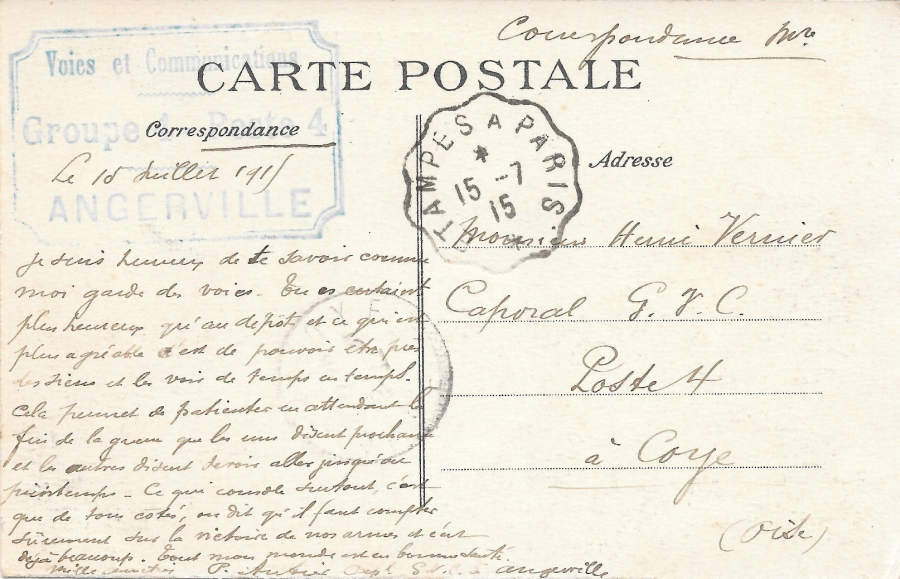 Correspondance Mre
Voies et Communications
CARTE POSTALE
Groupe 4 Poste 4
Correspondance
Adresse
ANGERVILLE
ETAMPES A PARIS
15 -7
15
Le 15 Juillet 1915
Je suis heureux de te savoir comme
moi garde des voies. Tu es certaint
plus heureux qu'au dépôt et ce qui est
plus agréable c'est de pouvoir être près
des siens et les voir de temps en temps.
Cela permet de patienter en attendant la
fin de la guerre que les uns disent prochaine
et les autres disent devoir aller jusqu'au
printemps - Ce qui console surtout, c'est
que de tous cotés, on dit qu'il faut compter
sûrement sur la victoire de nos armes et c'est
déjà beaucoup. Tout mon monde est en bonne santé.
Mille amitiés P. G.V.C. à Angerville
Monsieur Henri Vernier
Caporal G. V. C.
Poste 4
à Coye
(Oise)